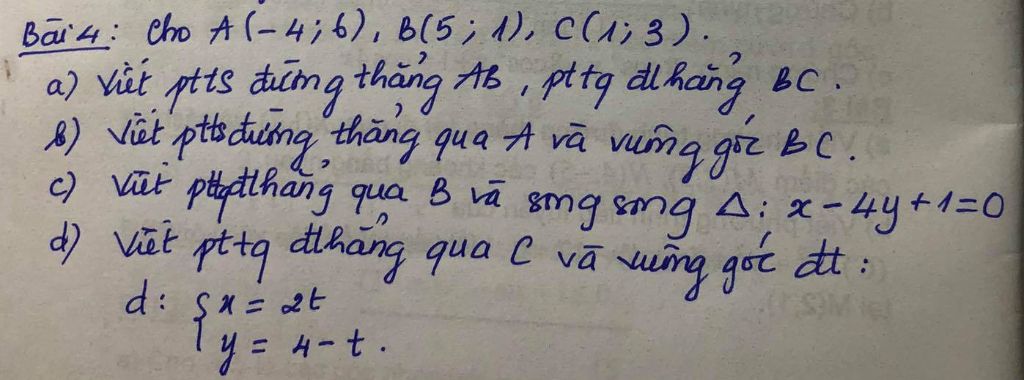 Bài 4: Cho A(-4; 6), B(5; 1), C(1; 3).
a) Viết ptts đường thẳng AB, pttq đthẳng BC.
b) Viết ptts đường thẳng qua A và vuông góc BC.
c) Viết pttq đthẳng qua B và song song Δ: x - 4y + 1 = 0
d) Viết pttq đthẳng qua C và vuông góc đt:
d: { x = 2t
y = 4 - t.